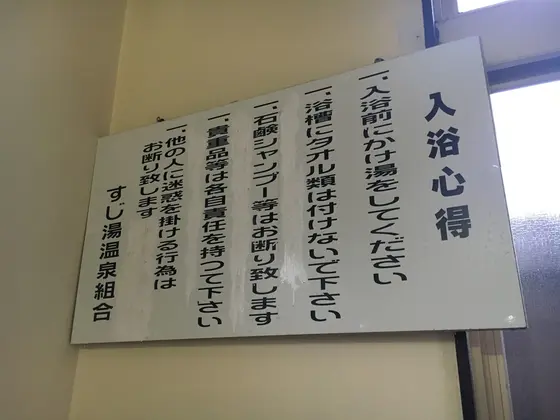 入浴心得
一、入浴前にかけ湯をしてください
一、浴槽にタオル類は付けないで下さい
一、石鹸シャンプー等はお断り致します
一、貴重品等は各自責任を持つて下さい
一、他の人に迷惑を掛ける行為は
お断り致します
すじ湯温泉組合